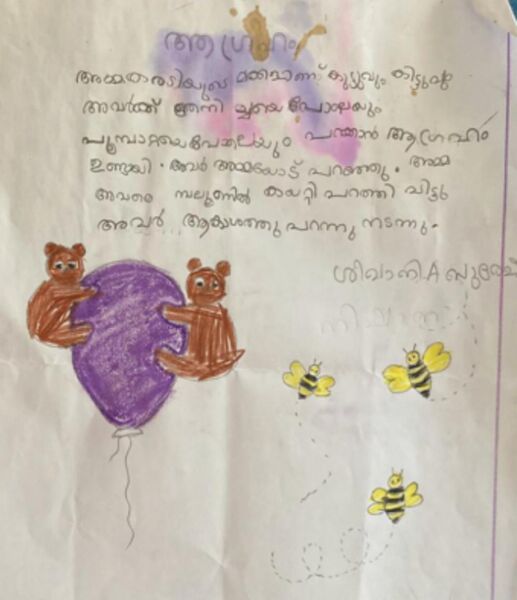 ആഗ്രഹം
അമ്മകരടിയുടെ മക്കളാണ് കുട്ടുവും കിട്ടുവും
അവർക്ക് തേനീച്ചയെ പോലെയും
പൂമ്പാറ്റയെപോലെയും പറക്കാൻ ആഗ്രഹം
ഉണ്ടായി. അവർ അമ്മയോട് പറഞ്ഞു. അമ്മ
അവരെ ബലൂണിൽ കയറ്റി പറത്തി വിട്ടു
അവർ ആകാശത്തു പറന്നു നടന്നു.
ശിവാനി A സുരേഷ്